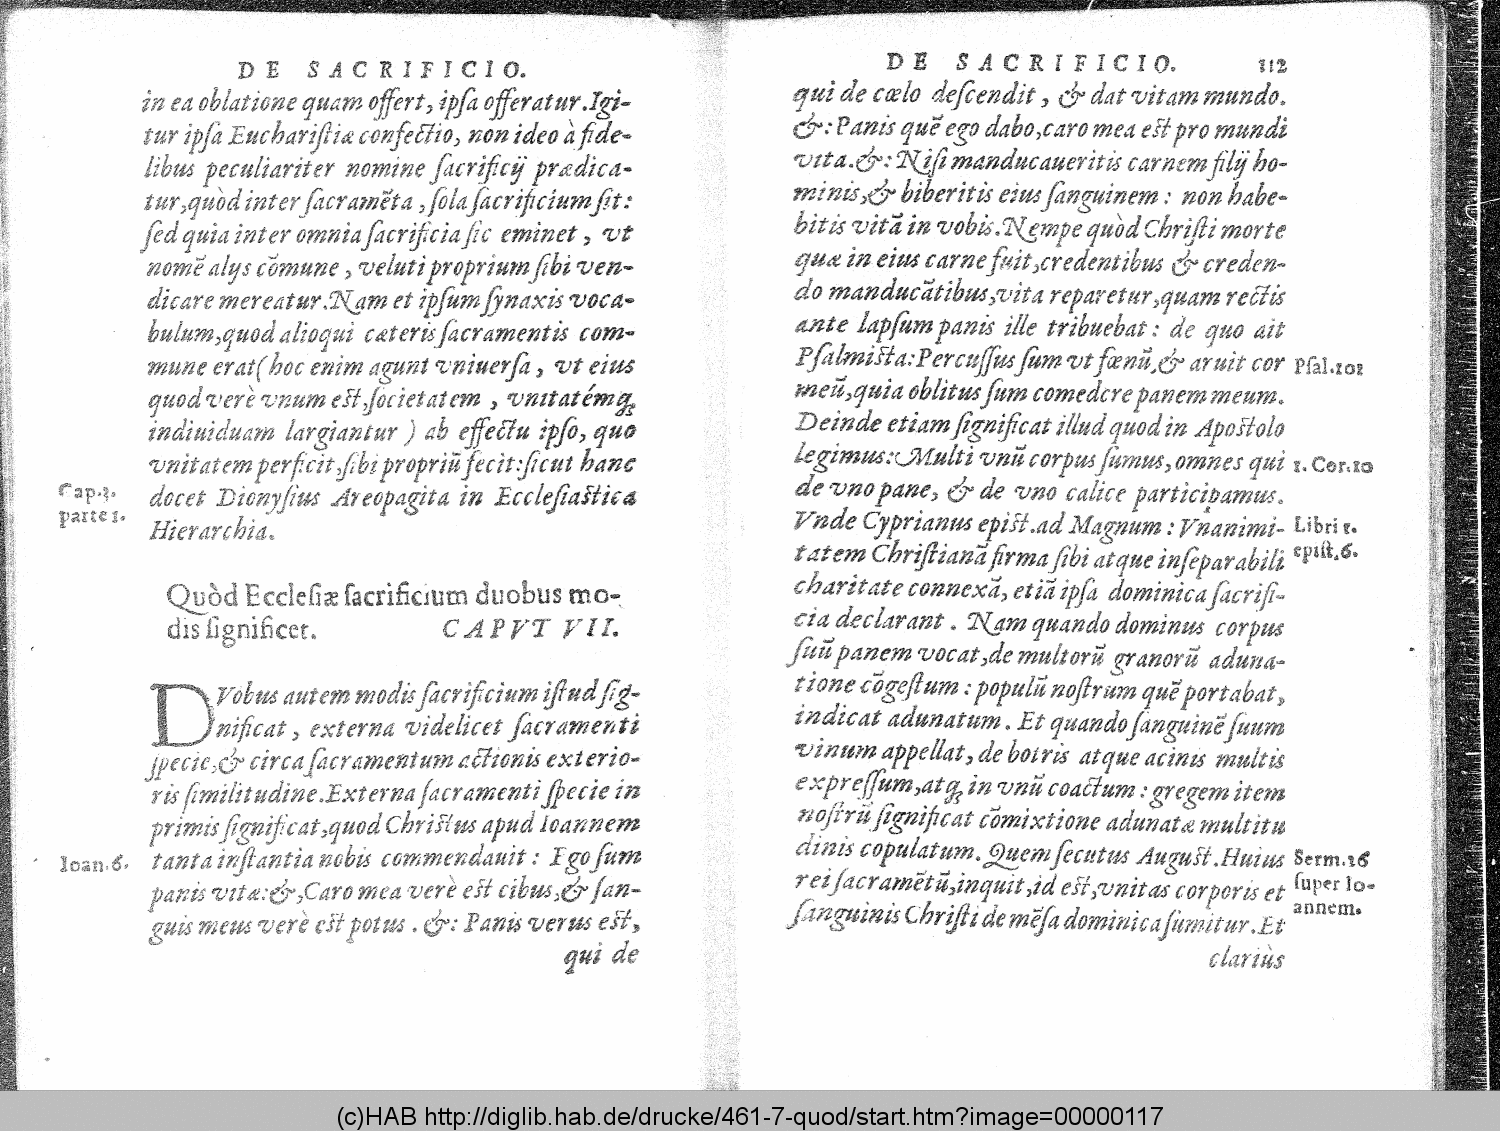 DE SACRIFICIO.
in ea oblatione quam offert, ipſa offeratur. Igi-
tur ipſa Euchariſtiæ confectio, non ideo à fide-
libus peculiariter nomine ſacrificij prædica-
tur, quòd inter ſacramēta, ſola ſacrificium ſit:
ſed quia inter omnia ſacrificia ſic eminet, vt
nomē alijs cōmune, veluti proprium ſibi ven-
dicare mereatur. Nam et ipſum ſynaxis voca-
bulum, quod alioqui cæteris ſacramentis com-
mune erat (hoc enim agunt vniuerſa, vt eius
quod verè vnum eſt, ſocietatem, vnitatémq;
indiuiduam largiantur) ab effectu ipſo, quo
vnitatem perficit, ſibi propriū fecit: ſicut hanc
Cap. 3. docet Dionyſius Areopagita in Eccleſiaſtica
parte 1. Hierarchia.
Quòd Eccleſiæ ſacrificium duobus mo-
dis ſignificet. CAPVT VII.
DVobus autem modis ſacrificium iſtud ſig-
nificat, externa videlicet ſacramenti
ſpecie, & circa ſacramentum actionis exterio-
ris ſimilitudine. Externa ſacramenti ſpecie in
primis ſignificat, quod Chriſtus apud Ioannem
Ioan. 6. tanta inſtantia nobis commendauit: Ego ſum
panis vitæ: &, Caro mea verè eſt cibus, & ſan-
guis meus verè eſt potus. &: Panis verus eſt,
qui de
DE SACRIFICIO. 112
qui de cœlo deſcendit, & dat vitam mundo.
&: Panis quē ego dabo, caro mea eſt pro mundi
vita. &: Niſi manducaueritis carnem filij ho-
minis, & biberitis eius ſanguinem: non habe-
bitis vitā in vobis. Nempe quòd Chriſti morte
quæ in eius carne fuit, credentibus & creden-
do manducātibus, vita reparetur, quam rectis
ante lapſum panis ille tribuebat: de quo ait
Pſalmiſta: Percuſſus ſum vt fœnū, & aruit cor Pſal. 101
meū, quia oblitus ſum comedere panem meum.
Deinde etiam ſignificat illud quod in Apoſtolo
legimus: Multi vnū corpus ſumus, omnes qui 1. Cor. 10
de vno pane, & de vno calice participamus.
Vnde Cyprianus epiſt. ad Magnum: Vnanimi- Libri 1.
tatem Chriſtianā firma ſibi atque inſeparabili epiſt. 6.
charitate connexā, etiā ipſa dominica ſacrifi-
cia declarant. Nam quando dominus corpus
ſuū panem vocat, de multorū granorū aduna-
tione cōgeſtum: populū noſtrum quē portabat,
indicat adunatum. Et quando ſanguinē ſuum
vinum appellat, de botris atque acinis multis
expreſſum, atq; in vnū coactum: gregem item
noſtrū ſignificat cōmixtione adunatæ multitu
dinis copulatum. Quem ſecutus Auguſt. Huius Serm. 26
rei ſacramētū, inquit, id eſt, vnitas corporis et ſuper Io-
ſanguinis Chriſti de mēſa dominica ſumitur. Et annem.
clariùs
(c)HAB http://diglib.hab.de/drucke/461-7-quod/start.htm?image=00000117